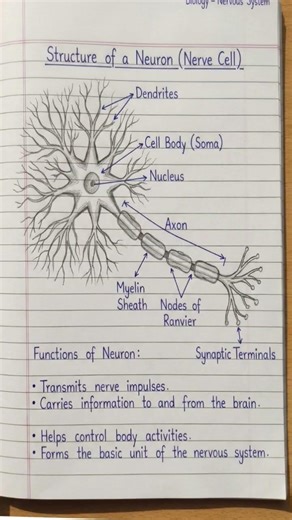 Biology – Nervous System
Structure of a Neuron (Nerve Cell)
Dendrites
Cell Body (Soma)
Nucleus
Axon
Myelin
Sheath
Nodes of
Ranvier
Synaptic Terminals
Functions of Neuron:
• Transmits nerve impulses.
• Carries information to and from the brain.
• Helps control body activities.
• Forms the basic unit of the nervous system.